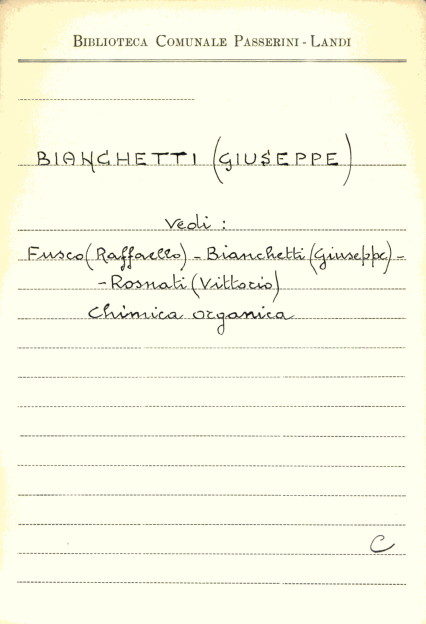 BIBLIOTECA COMUNALE PASSERINI - LANDI
BIANCHETTI (GIUSEPPE)
Vedi :
Fusco (Raffaello) - Bianchetti (Giuseppe) -
- Rosnati (Vittorio)
Chimica organica
C